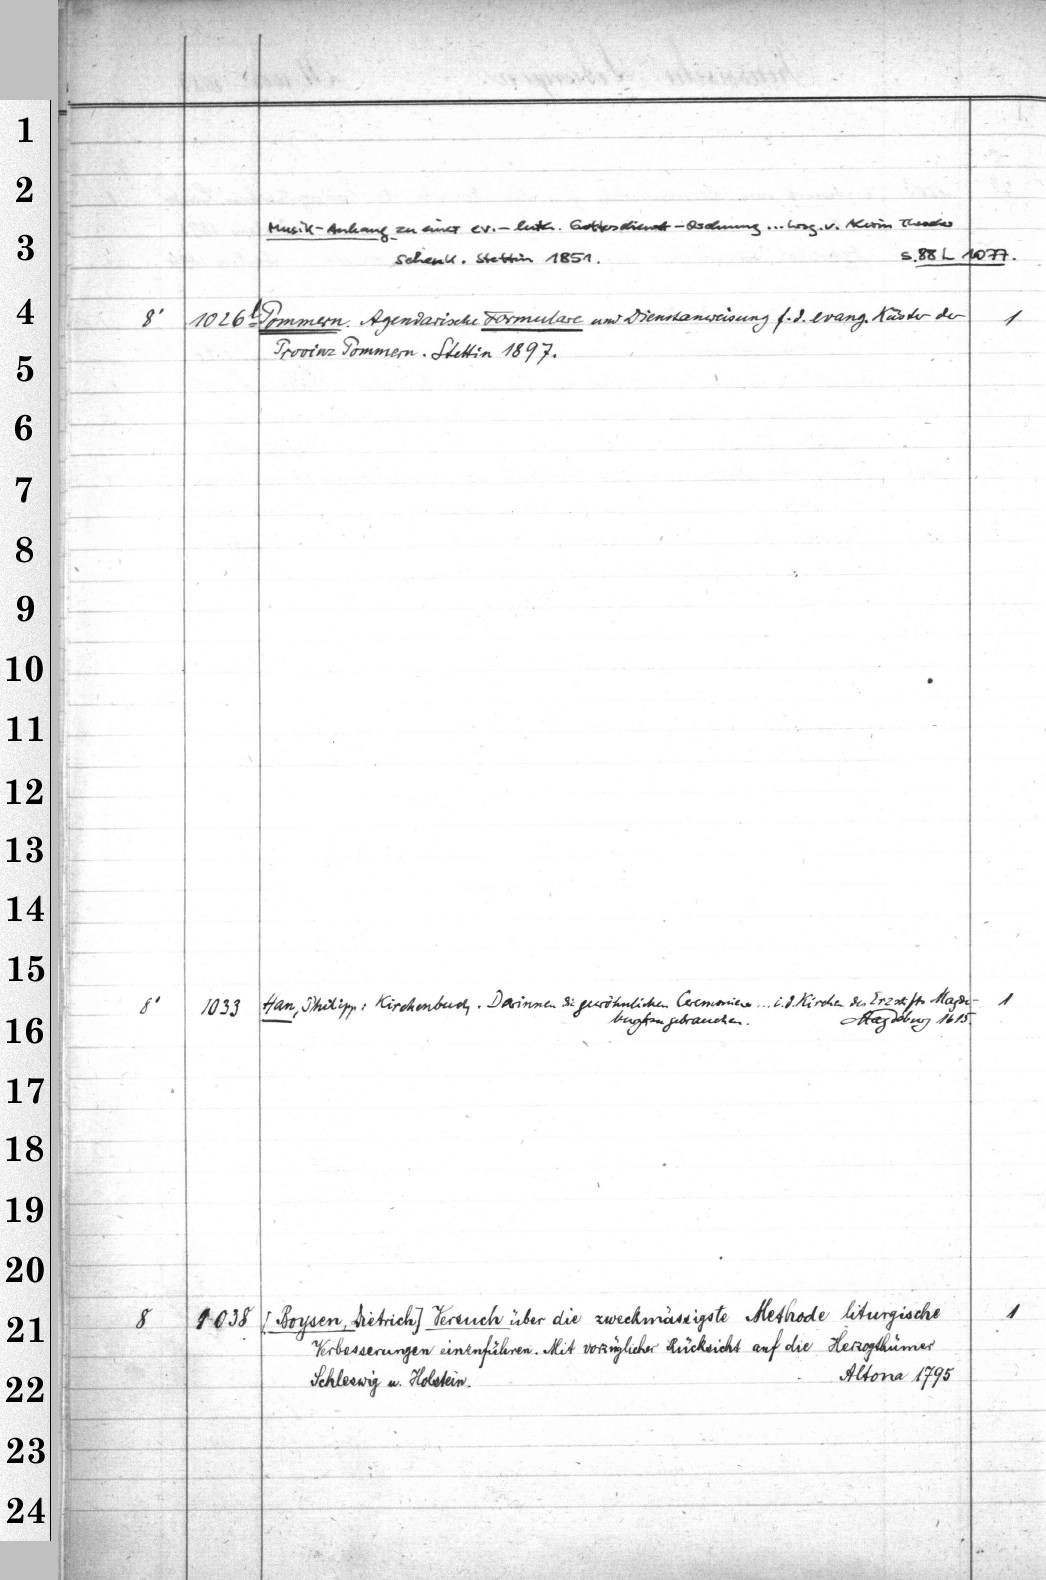 1
2
3
4
5
6
7
8
9
10
11
12
13
14
15
16
17
18
19
20
21
22
23
24
Musik-Anhang zu einer ev.-luth. Gottesdienst-Ordnung ... hrsg. v. Theodor
Schenk. Stettin 1851. s. 88 L 1077.
8' 1026 l Pommern. Agendarische Formulare und Dienstanweisung f. d. evang. Küster der 1
Provinz Pommern. Stettin 1897.
8' 1033 Han, Philipp: Kirchenbuch. Darinnen die gewöhnlichen Ceremonien ... i. d. Kirchen des Erzstifts Magde- 1
burgk zu gebrauchen. Magdeburg 1615.
8 1038 [Boysen, Dietrich] Versuch über die zweckmässigste Methode liturgische 1
Verbesserungen einzuführen. Mit vorzüglicher Rücksicht auf die Herzogthümer
Schleswig u. Holstein. Altona 1795